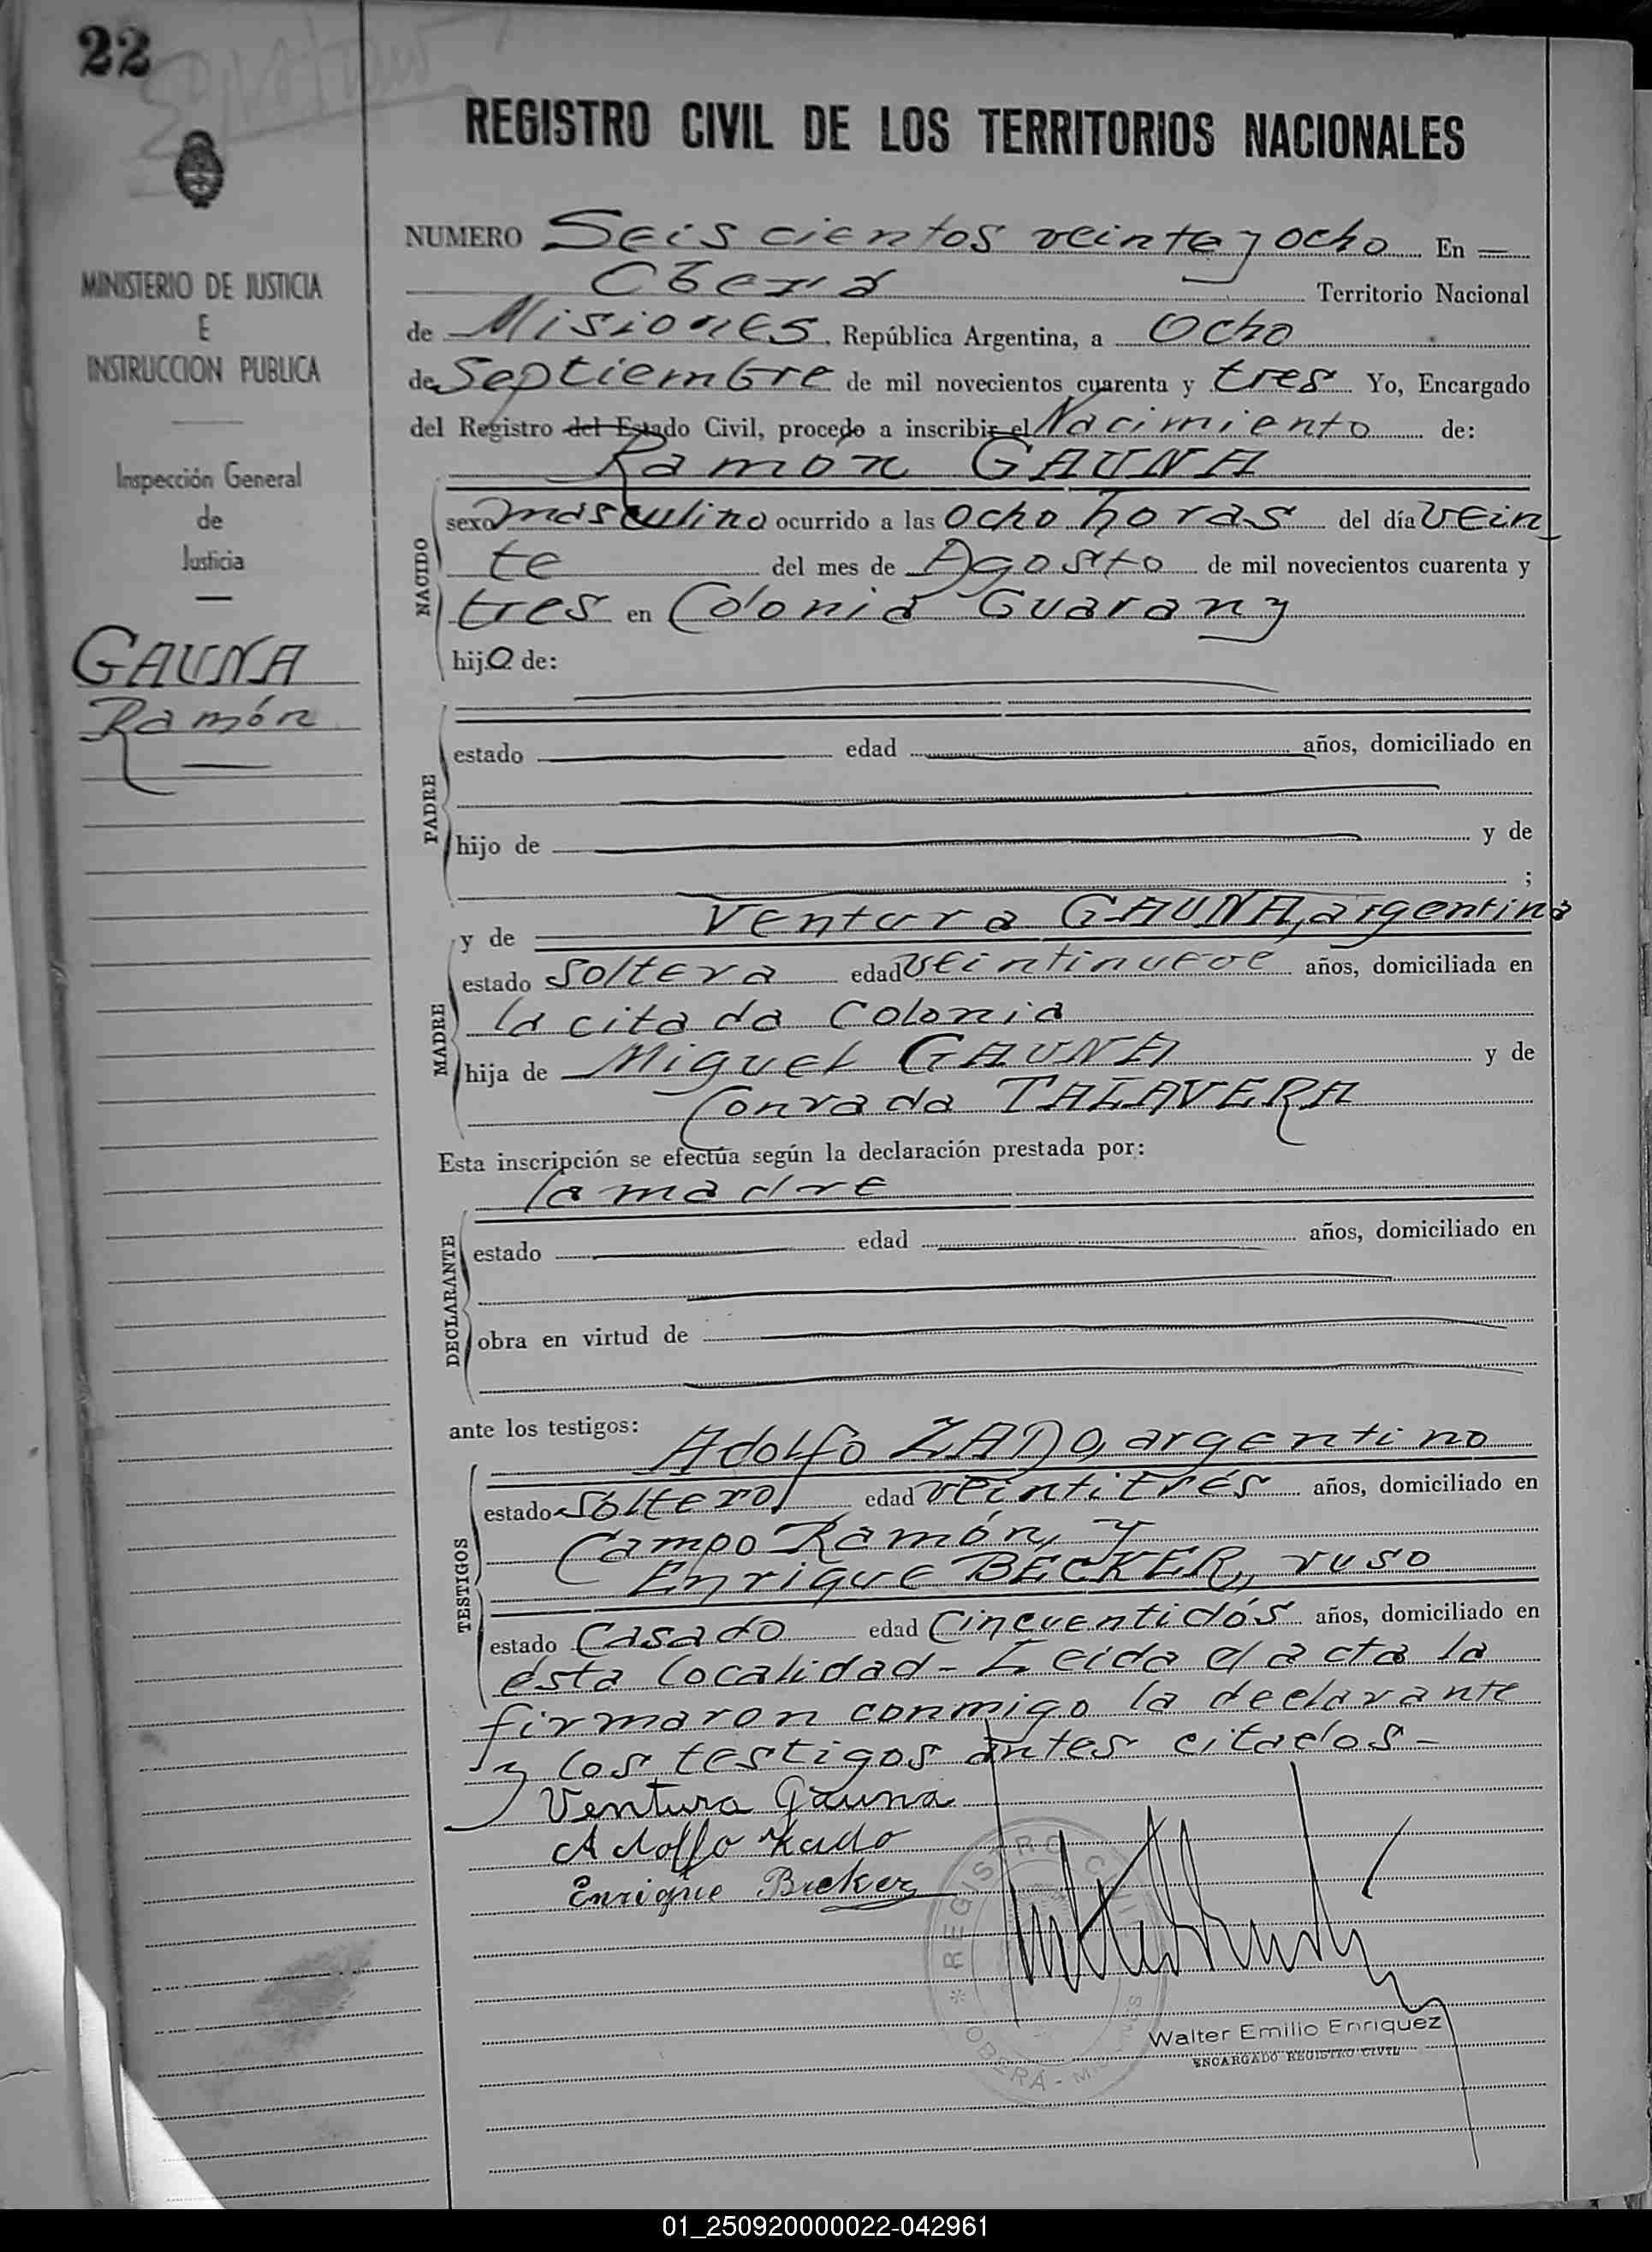 22
REGISTRO CIVIL DE LOS TERRITORIOS NACIONALES
MINISTERIO DE JUSTICIA
E
INSTRUCCION PUBLICA
Inspección General
de
Justicia
GAUNA
Ramón
NUMERO Seis cientos veinte y ocho En
Oberá Territorio Nacional
de Misiones, República Argentina, a Ocho
de Septiembre de mil novecientos cuarenta y tres Yo, Encargado
del Registro del Estado Civil, procedo a inscribir el Nacimiento de:
Ramón GAUNA
NACIDO
sexo masculino ocurrido a las ocho horas del día vein
te del mes de Agosto de mil novecientos cuarenta y
tres en Colonia Guarany
hijo de:
PADRE
estado edad años, domiciliado en
hijo de y de
;
y de Ventura GAUNA, argentina
MADRE
estado soltera edad veintinueve años, domiciliada en
la citada Colonia
hija de Miguel GAUNA y de
Conrada TALAVERA
Esta inscripción se efectúa según la declaración prestada por:
la madre
DECLARANTE
estado edad años, domiciliado en
obra en virtud de
ante los testigos:
Adolfo ZADO, argentino
TESTIGOS
estado soltero edad veintitrés años, domiciliado en
Campo Ramón, y
Enrique BECKER, ruso
estado casado edad cincuentidós años, domiciliado en
ésta localidad - Leida el acta la
firmaron conmigo la declarante
y los testigos antes citados -
Ventura Gauna
Adolfo
Enrique Becker
REGISTRO CIVIL
OBERÁ -
Walter Emilio Enriquez
ENCARGADO REGISTRO CIVIL
01_250920000022-042961